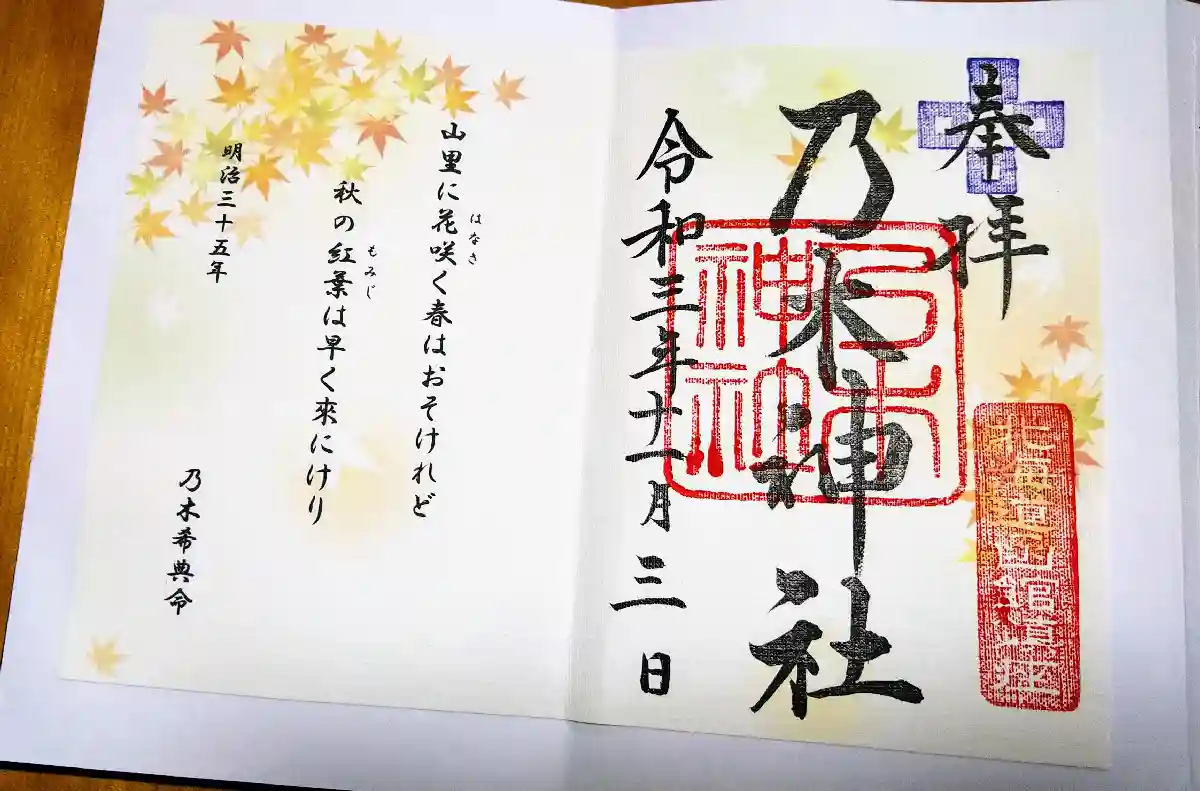 奉拝
北海道函館鎮座
乃木神社
乃木
神社
令和三年十一月三日
山里に花咲く春はおそけれど
はなさ
秋の紅葉は早く來にけり
もみじ
明治三十五年
乃木希典命